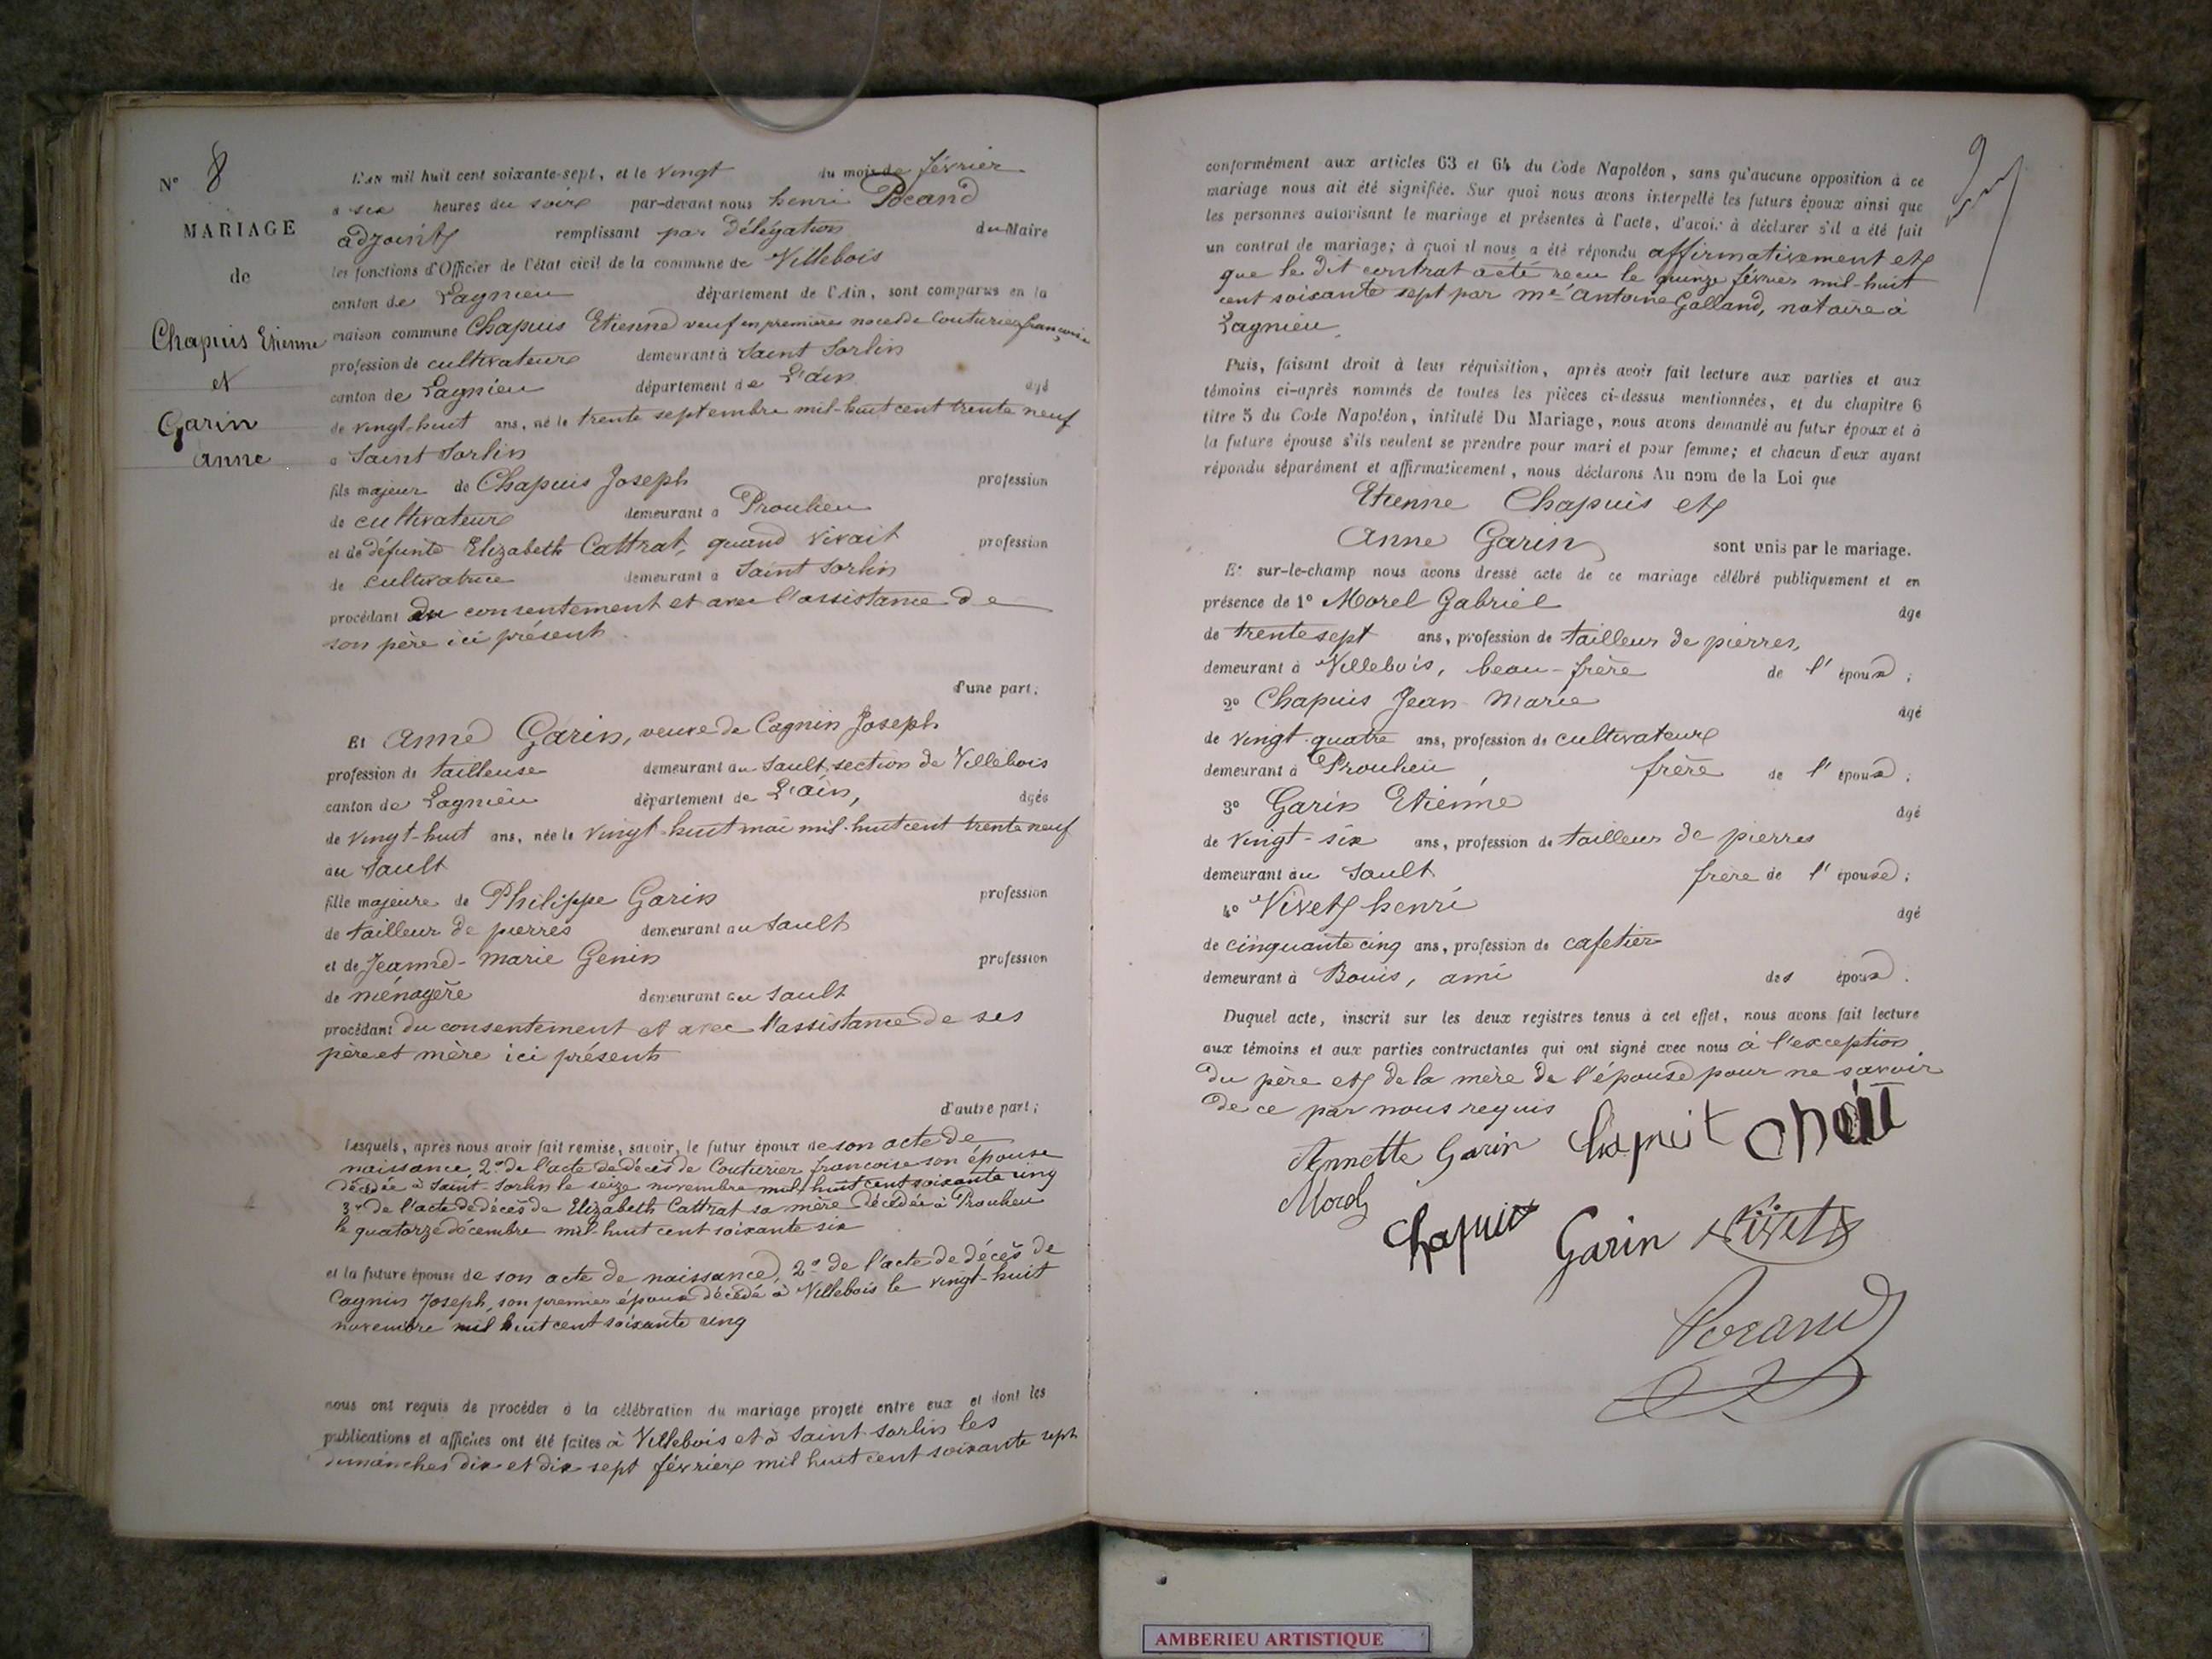 N° 8
MARIAGE
de
Chapuis Etienne
et
Garin
Anne
L'AN mil huit cent soixante-sept, et le vingt du mois de février
a six heures du soir par-devant nous henri
adjoint remplissant par délégation du Maire
les fonctions d'Officier de l'état civil de la commune de Villebois
canton de Lagnieu département de l'Ain, sont comparus en la
maison commune Chapuis Etienne veuf en premières noces de Couturier françoise
profession de cultivateur demeurant à Saint Sorlin
canton de Lagnieu département de L'ain âgé
de vingt-huit ans, né le trente septembre mil-huit cent trente neuf
a Saint Sorlin
fils majeur de Chapuis Joseph profession
de cultivateur demeurant a Proulieu
et de défunte Elizabeth Cattrat, quand vivait profession
de cultivatrice demeurant a Saint Sorlin
procédant du consentement et avec l'assistance de
son père ici présent
d'une part;
Et Anne Garin, veuve de Cagnin Joseph
profession de tailleuse demeurant au Sault, section de Villebois
canton de Lagnieu département de L'ain, âgée
de vingt-huit ans, née le vingt-huit mai mil-huit cent trente neuf
au Sault
fille majeure de Philippe Garin profession
de tailleur de pierres demeurant au Sault
et de Jeanne-Marie Genin profession
de ménagère demeurant au Sault
procédant du consentement et avec l'assistance de ses
père et mère ici présents
d'autre part;
Lesquels, après nous avoir fait remise, savoir, le futur époux de son acte de
naissance, 2° de l'acte de décès de Couturier francoise son épouse
décédée à Saint-Sorlin le seize novembre mil huit cent soixante cinq
3° de l'acte de décès de Elizabeth Cattrat sa mère décédée à Proulieu
le quatorze décembre mil-huit cent soixante six
et la future épouse de son acte de naissance, 2° de l'acte de décès de
Cagnin Joseph, son premier époux décédé à Villebois le vingt-huit
novembre mil huit cent soixante cinq
nous ont requis de procéder à la célébration du mariage projeté entre eux et dont les
publications et affiches ont été faites à Villebois et à Saint-Sorlin les
dimanches dix et dix sept février mil huit cent soixante sept
conformément aux articles 63 et 64 du Code Napoléon, sans qu'aucune opposition à ce
mariage nous ait été signifiée. Sur quoi nous avons interpellé les futurs époux ainsi que
les personnes autorisant le mariage et présentes à l'acte, d'avoir à déclarer s'il a été fait
un contrat de mariage; à quoi il nous a été répondu affirmativement et
que le dit contrat a été recu le quinze février mil-huit
cent soixante sept par me Antoine Galland, notaire à
Lagnieu.
Puis, faisant droit à leur réquisition, après avoir fait lecture aux parties et aux
témoins ci-après nommés de toutes les pièces ci-dessus mentionnées, et du chapitre 6
titre 5 du Code Napoléon, intitulé Du Mariage, nous avons demandé au futur époux et à
la future épouse s'ils veulent se prendre pour mari et pour femme; et chacun d'eux ayant
répondu séparément et affirmativement, nous déclarons Au nom de la Loi que
Etienne Chapuis et
Anne Garin sont unis par le mariage.
Et sur-le-champ nous avons dressé acte de ce mariage célébré publiquement et en
présence de 1° Morel Gabriel âgé
de trente sept ans, profession de tailleur de pierres,
demeurant à Villebois, beau-frère de l'époux;
2° Chapuis Jean Marie âgé
de vingt-quatre ans, profession de cultivateur
demeurant à Proulieu, frère de l'époux;
3° Garin Etienne âgé
de vingt-six ans, profession de tailleur de pierres
demeurant au Sault frère de l'épouse;
4° Vivet henri âgé
de cinquante cinq ans, profession de cafetier
demeurant à Bouis, ami des époux.
Duquel acte, inscrit sur les deux registres tenus à cet effet, nous avons fait lecture
aux témoins et aux parties contractantes qui ont signé avec nous à l'exception
du père et de la mère de l'épouse pour ne savoir
de ce par nous requis
Annette Garin
Morel
Chapuis Garin Vivet
AMBERIEU ARTISTIQUE